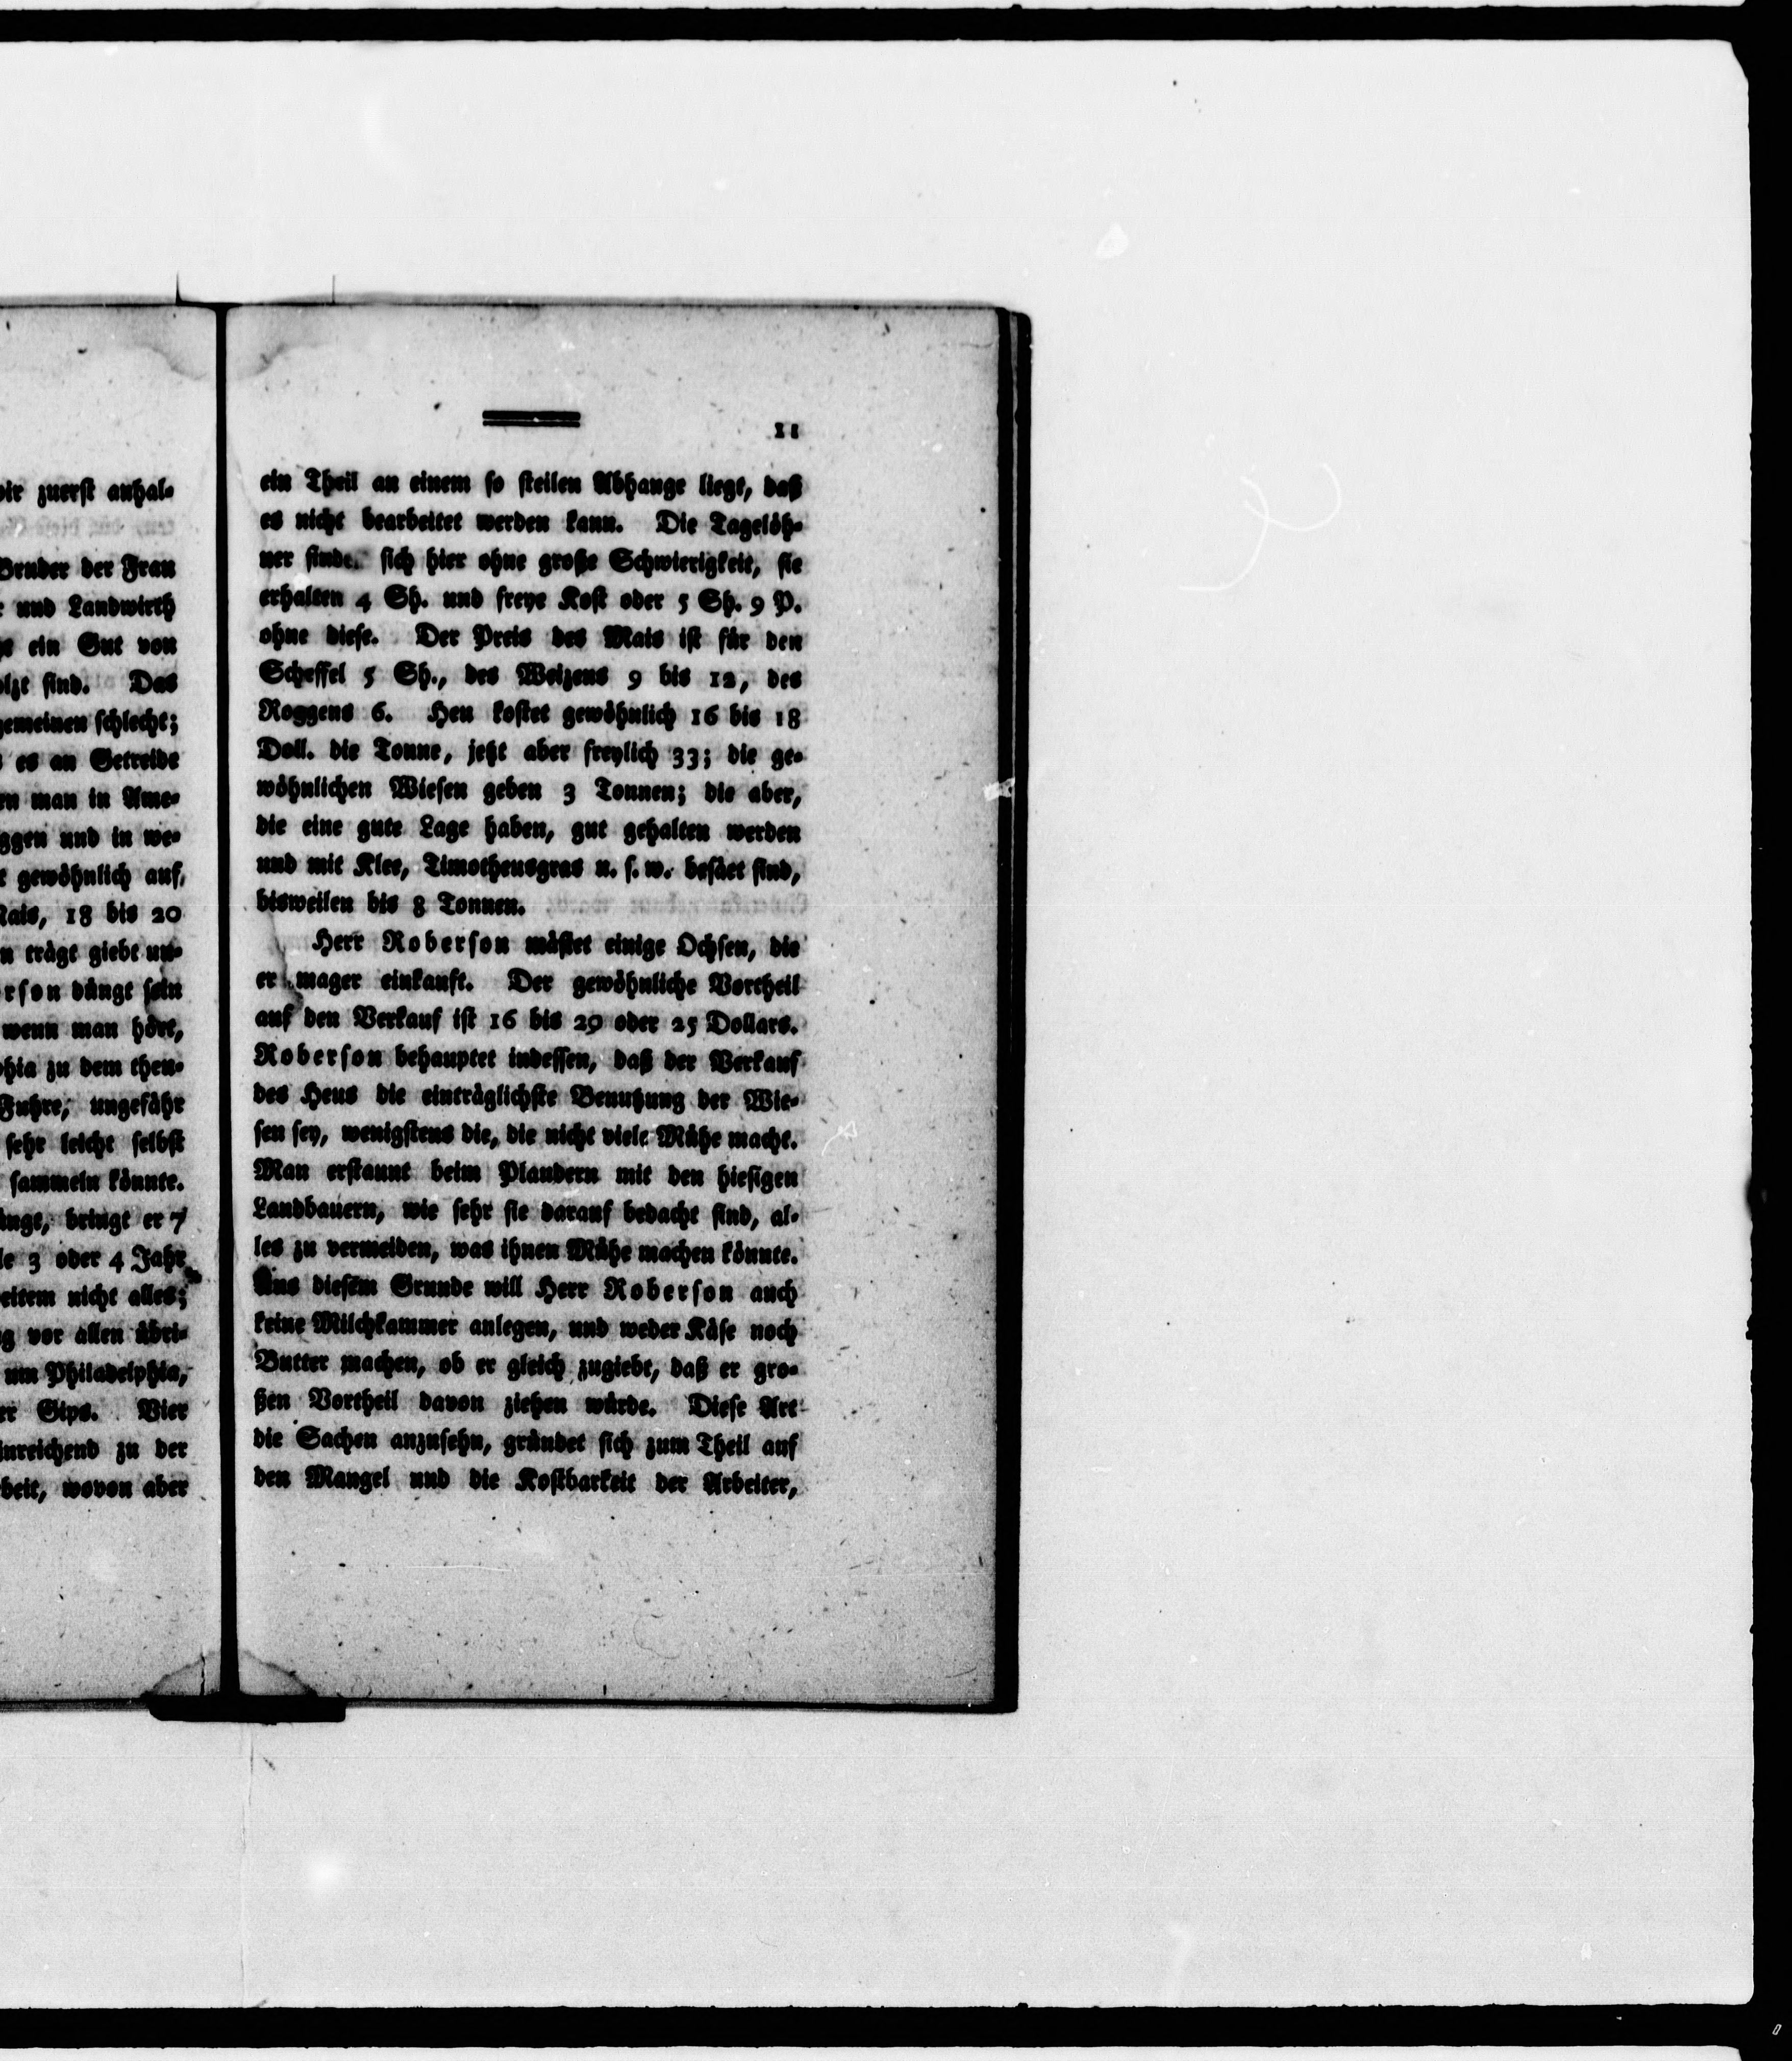 ir zuerst anhal-
Bruder der Frau
und Landwirth
ein Gut von
olzt sind. Das
gemeinen schlecht;
es an Getreide
en man in Ame-
ggen und in we-
gewöhnlich auf,
Mais, 18 bis 20
n trägt giebt un-
erson düngt sein
wenn man hört,
phia zu dem theu-
Fuhre, ungefähr
sehr leicht selbst
sammeln könnte.
üngt, bringt er 7
le 3 oder 4 Jahr
eitem nicht alles;
g vor allen übri-
um Philadelphia,
er Gips. Vier
inreichend zu der
beit, wovon aber
11
ein Theil an einem so steilen Abhange liegt, daß
es nicht bearbeitet werden kann. Die Tagelöh-
ner finde. sich hier ohne große Schwierigkeit, sie
erhalten 4 Sh. und freye Kost oder 5 Sh. 9 P.
ohne diese. Der Preis des Mais ist für den
Scheffel 5 Sh., des Weizens 9 bis 12, des
Roggens 6. Heu kostet gewöhnlich 16 bis 18
Doll. die Tonne, jetzt aber freylich 33; die ge-
wöhnlichen Wiesen geben 3 Tonnen; die aber,
die eine gute Lage haben, gut gehalten werden
und mit Klee, Timotheusgras u. s. w. besäet sind,
bisweilen bis 8 Tonnen.
Herr Roberson mästet einige Ochsen, die
er mager einkauft. Der gewöhnliche Vortheil
auf den Verkauf ist 16 bis 20 oder 25 Dollars.
Roberson behauptet indessen, daß der Verkauf
des Heus die einträglichste Benutzung der Wie-
sen sey, wenigstens die, die nicht viele Mühe macht.
Man erstaunt beim Plaudern mit den hiesigen
Landbauern, wie sehr sie darauf bedacht sind, al-
les zu vermeiden, was ihnen Mühe machen könnte.
Aus diesem Grunde will Herr Roberson auch
keine Milchkammer anlegen, und weder Käse noch
Butter machen, ob er gleich zugiebt, daß er gro-
ßen Vortheil davon ziehen würde. Diese Art
die Sachen anzusehn, gründet sich zum Theil auf
den Mangel und die Kostbarkeit der Arbeiter,